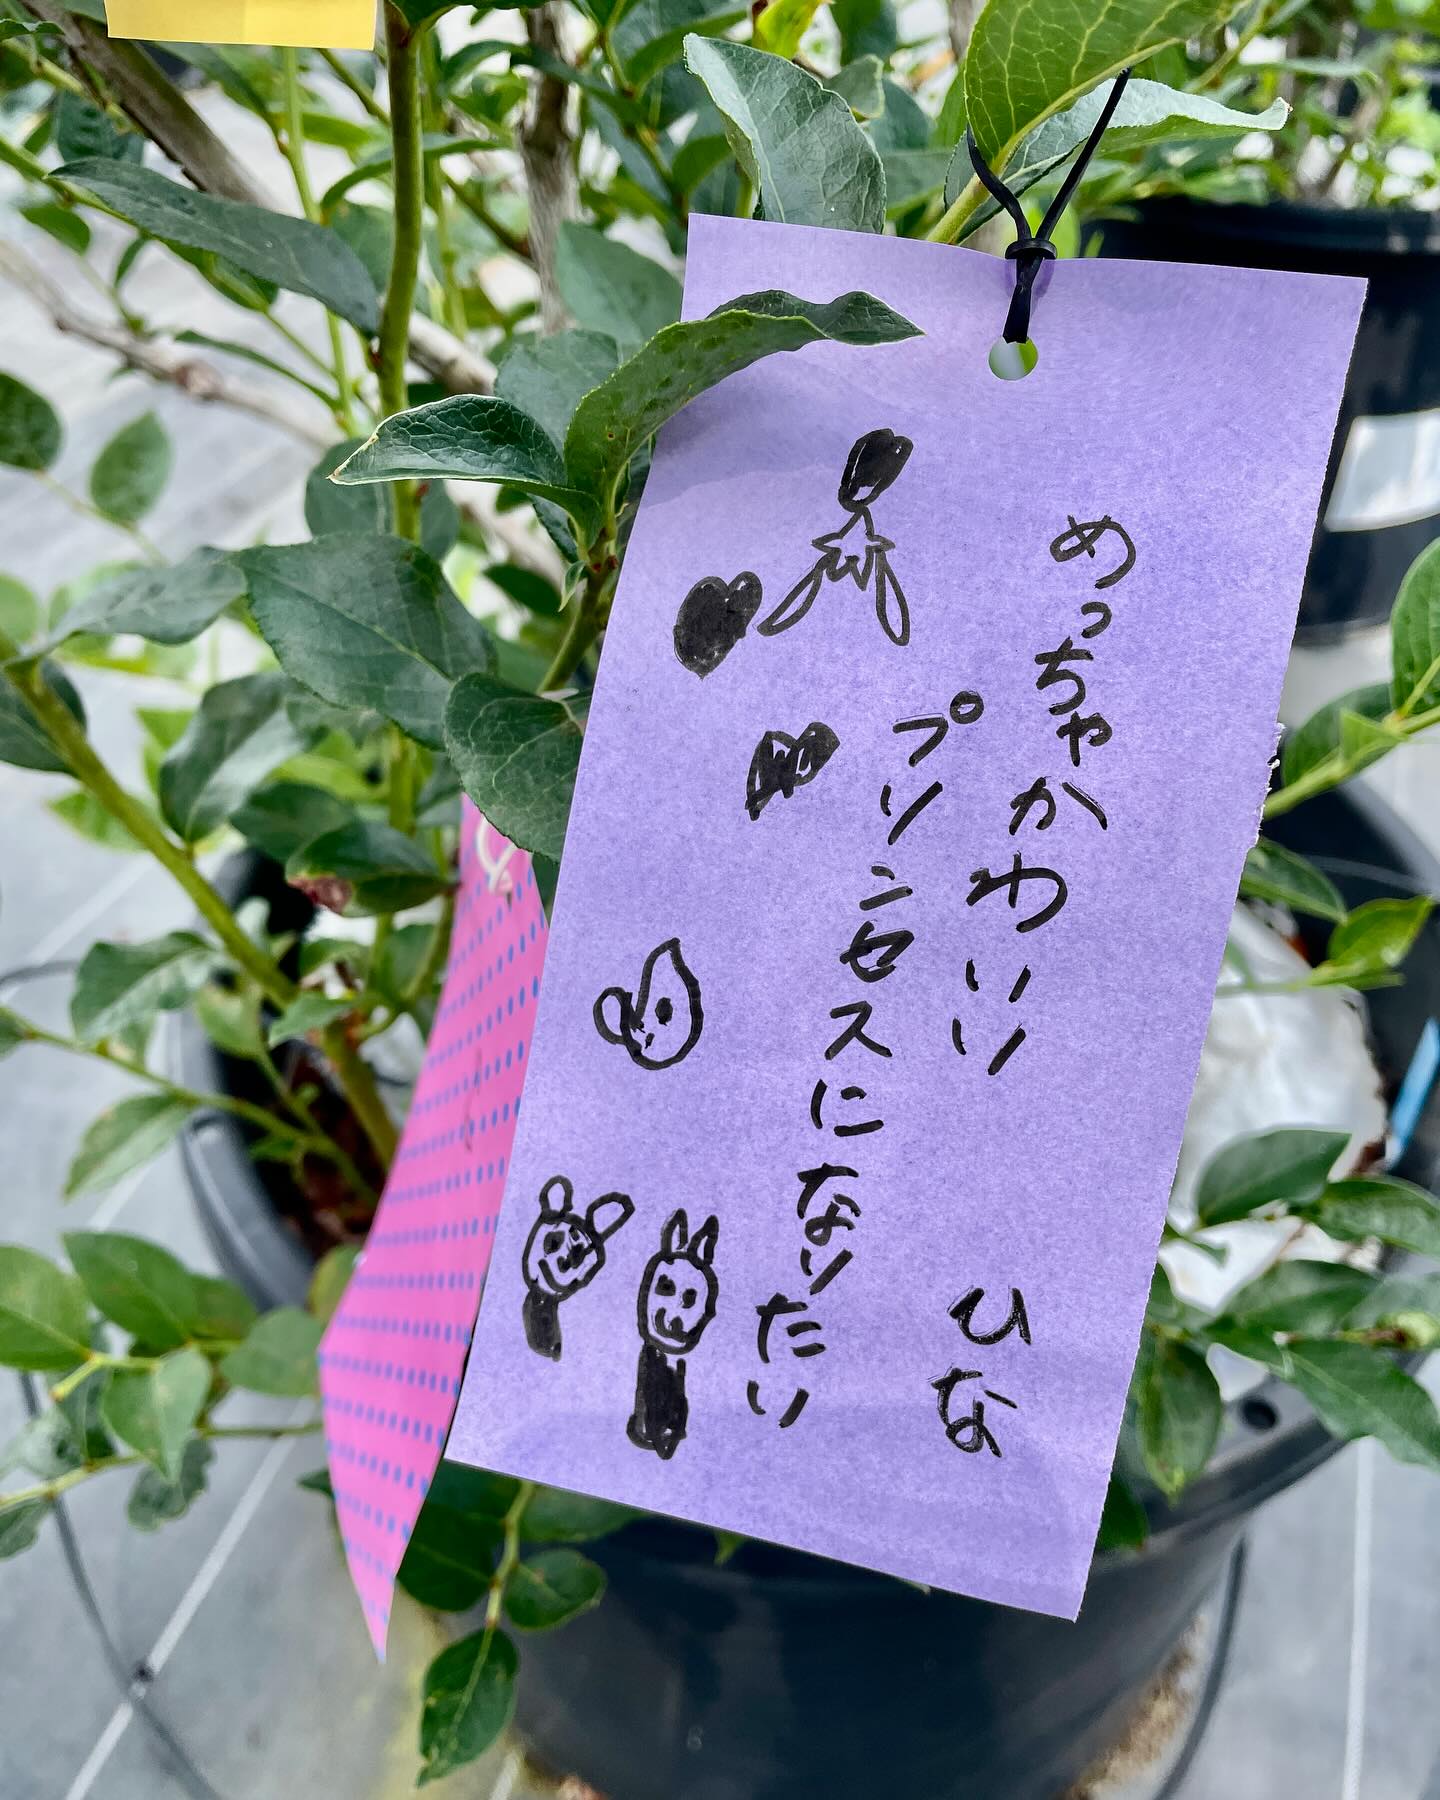 めっちゃかわいい
プリンセスになりたい
ひな